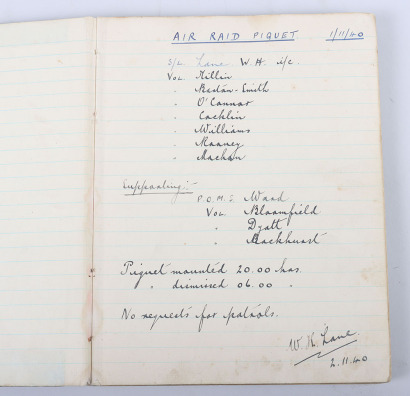 AIR RAID PIQUET 1/11/40
S/L Lane W.H. i/c.
Vol. Killin
" Bestan-Smith
" O'Connor
" Cocklin
" Williams
" Rooney
" Machan
Supporting:-
P.O.M.S Ward
Vol. Bloomfield
" Dyatt
" Backhurst
Piquet mounted 20.00 hrs.
" dismissed 06.00 "
No requests for patrols.
W. H. Lane.
2.11.40